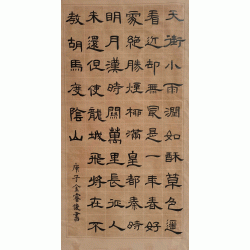 天街小雨潤如酥草色遥
看近却無最是一年春好
處絶勝煙柳滿皇都秦時
明月漢時關萬里長征人
未還但使龍城飛將在不
教胡馬度陰山
庚子 書